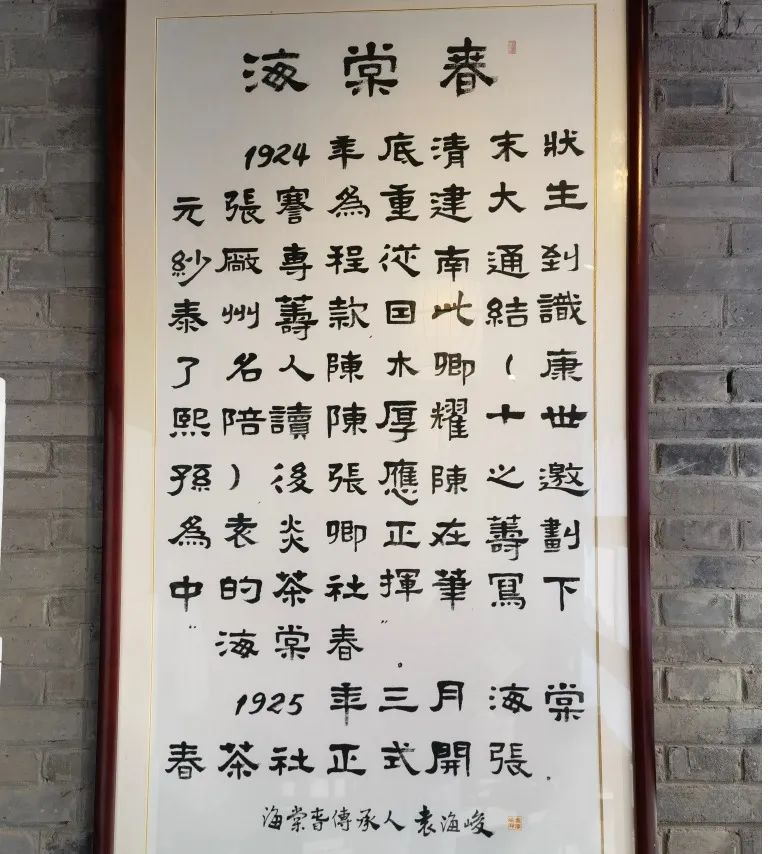 海棠春
1924年底清末狀
元張謇為重建大生
紗廠專程從南通到
泰州籌款因此結識
了名人陳木卿(康
熙陪讀陳厚耀十世
孫)後張應陳之邀
為袁炎卿正在籌劃
中的茶社揮筆寫下
"海棠春"。
1925年三月海棠
春茶社正式開張.
海棠春傳承人袁海峻